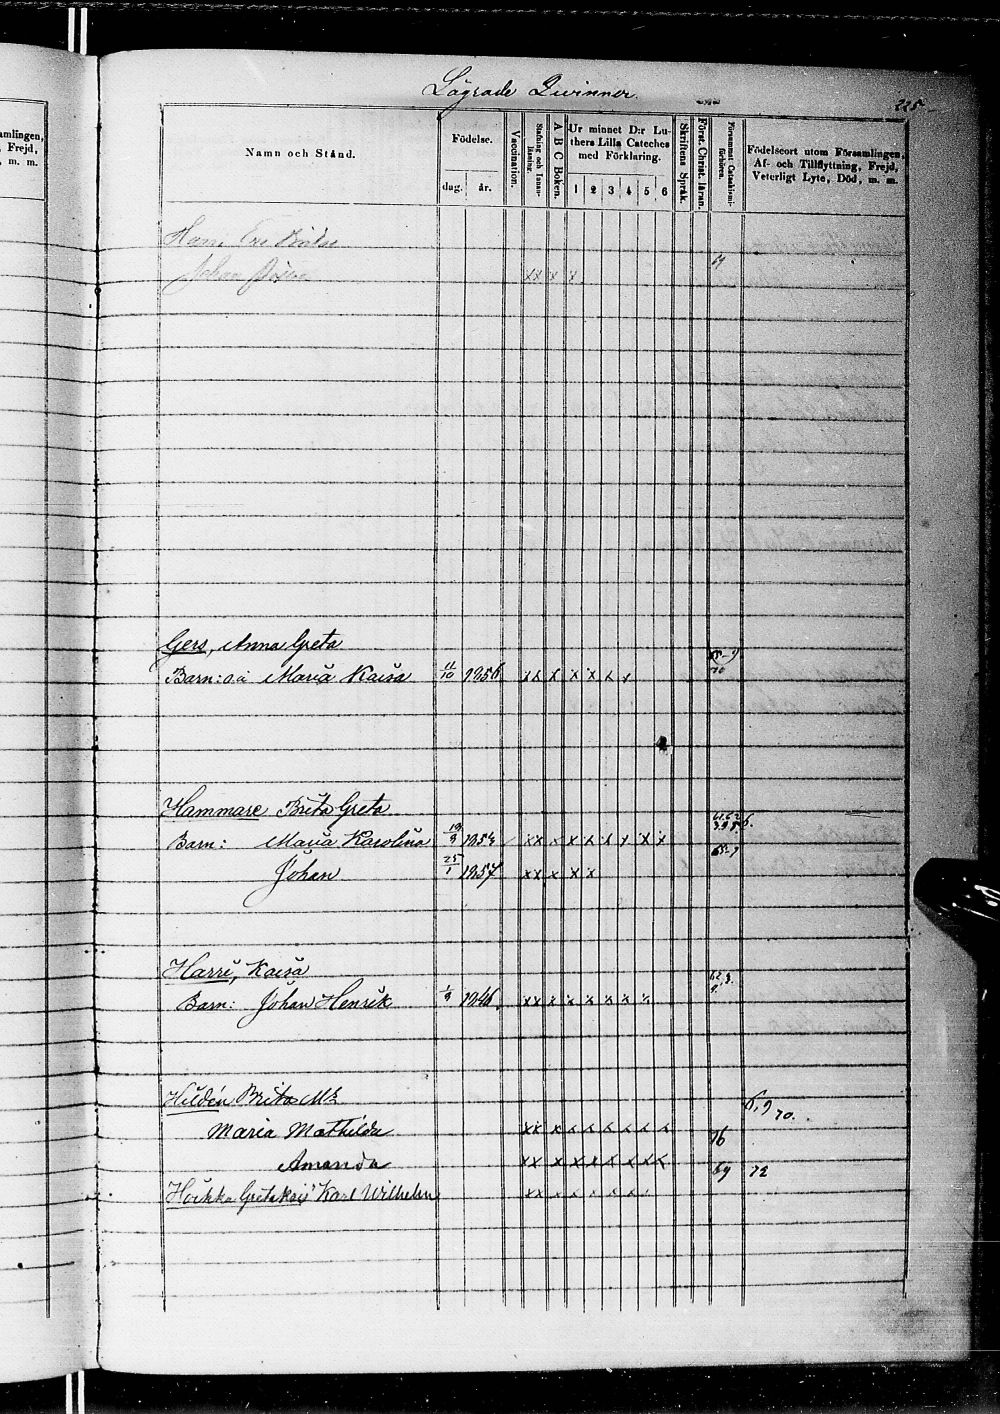 amlingen,
, Frejd,
, m. m.
Lägrade Qvinnor.
225
Namn och Stånd.
Födelse.
dag.
år.
Vaccination.
Stafning och Innanläsning.
A B C Boken.
Ur minnet D:r Luthers Lilla Cateches med Förklaring.
1 2 3 4 5 6
Skriftens Språk.
Först. Christ. läran.
Försummat Catechismiförhören.
Födelseort utom Församlingen,
Af- och Tillflyttning, Frejd,
Veterligt Lyte, Död, m. m.
Johan xx x x 69
Gers, Anna Greta
Barn: o.ä Maria Kaisa 11/10 1856 xx x x x x x 70
Hammare Brita Greta
Barn: Maria Karolina 19/9 1854 xx x x x x x x x
Johan 25/1 1857 xx x x x
Harri, Kaisa
Barn: Johan Henrik 1/9 1846. xx x x x x x x
Hildén Brita 6,9 70.
Maria Mathilda xx x x x x x x x 76
Amanda xx x x x x x x x 69 72
Hoikka Greta Kajs Karl Wilhelm xx x x x x x x